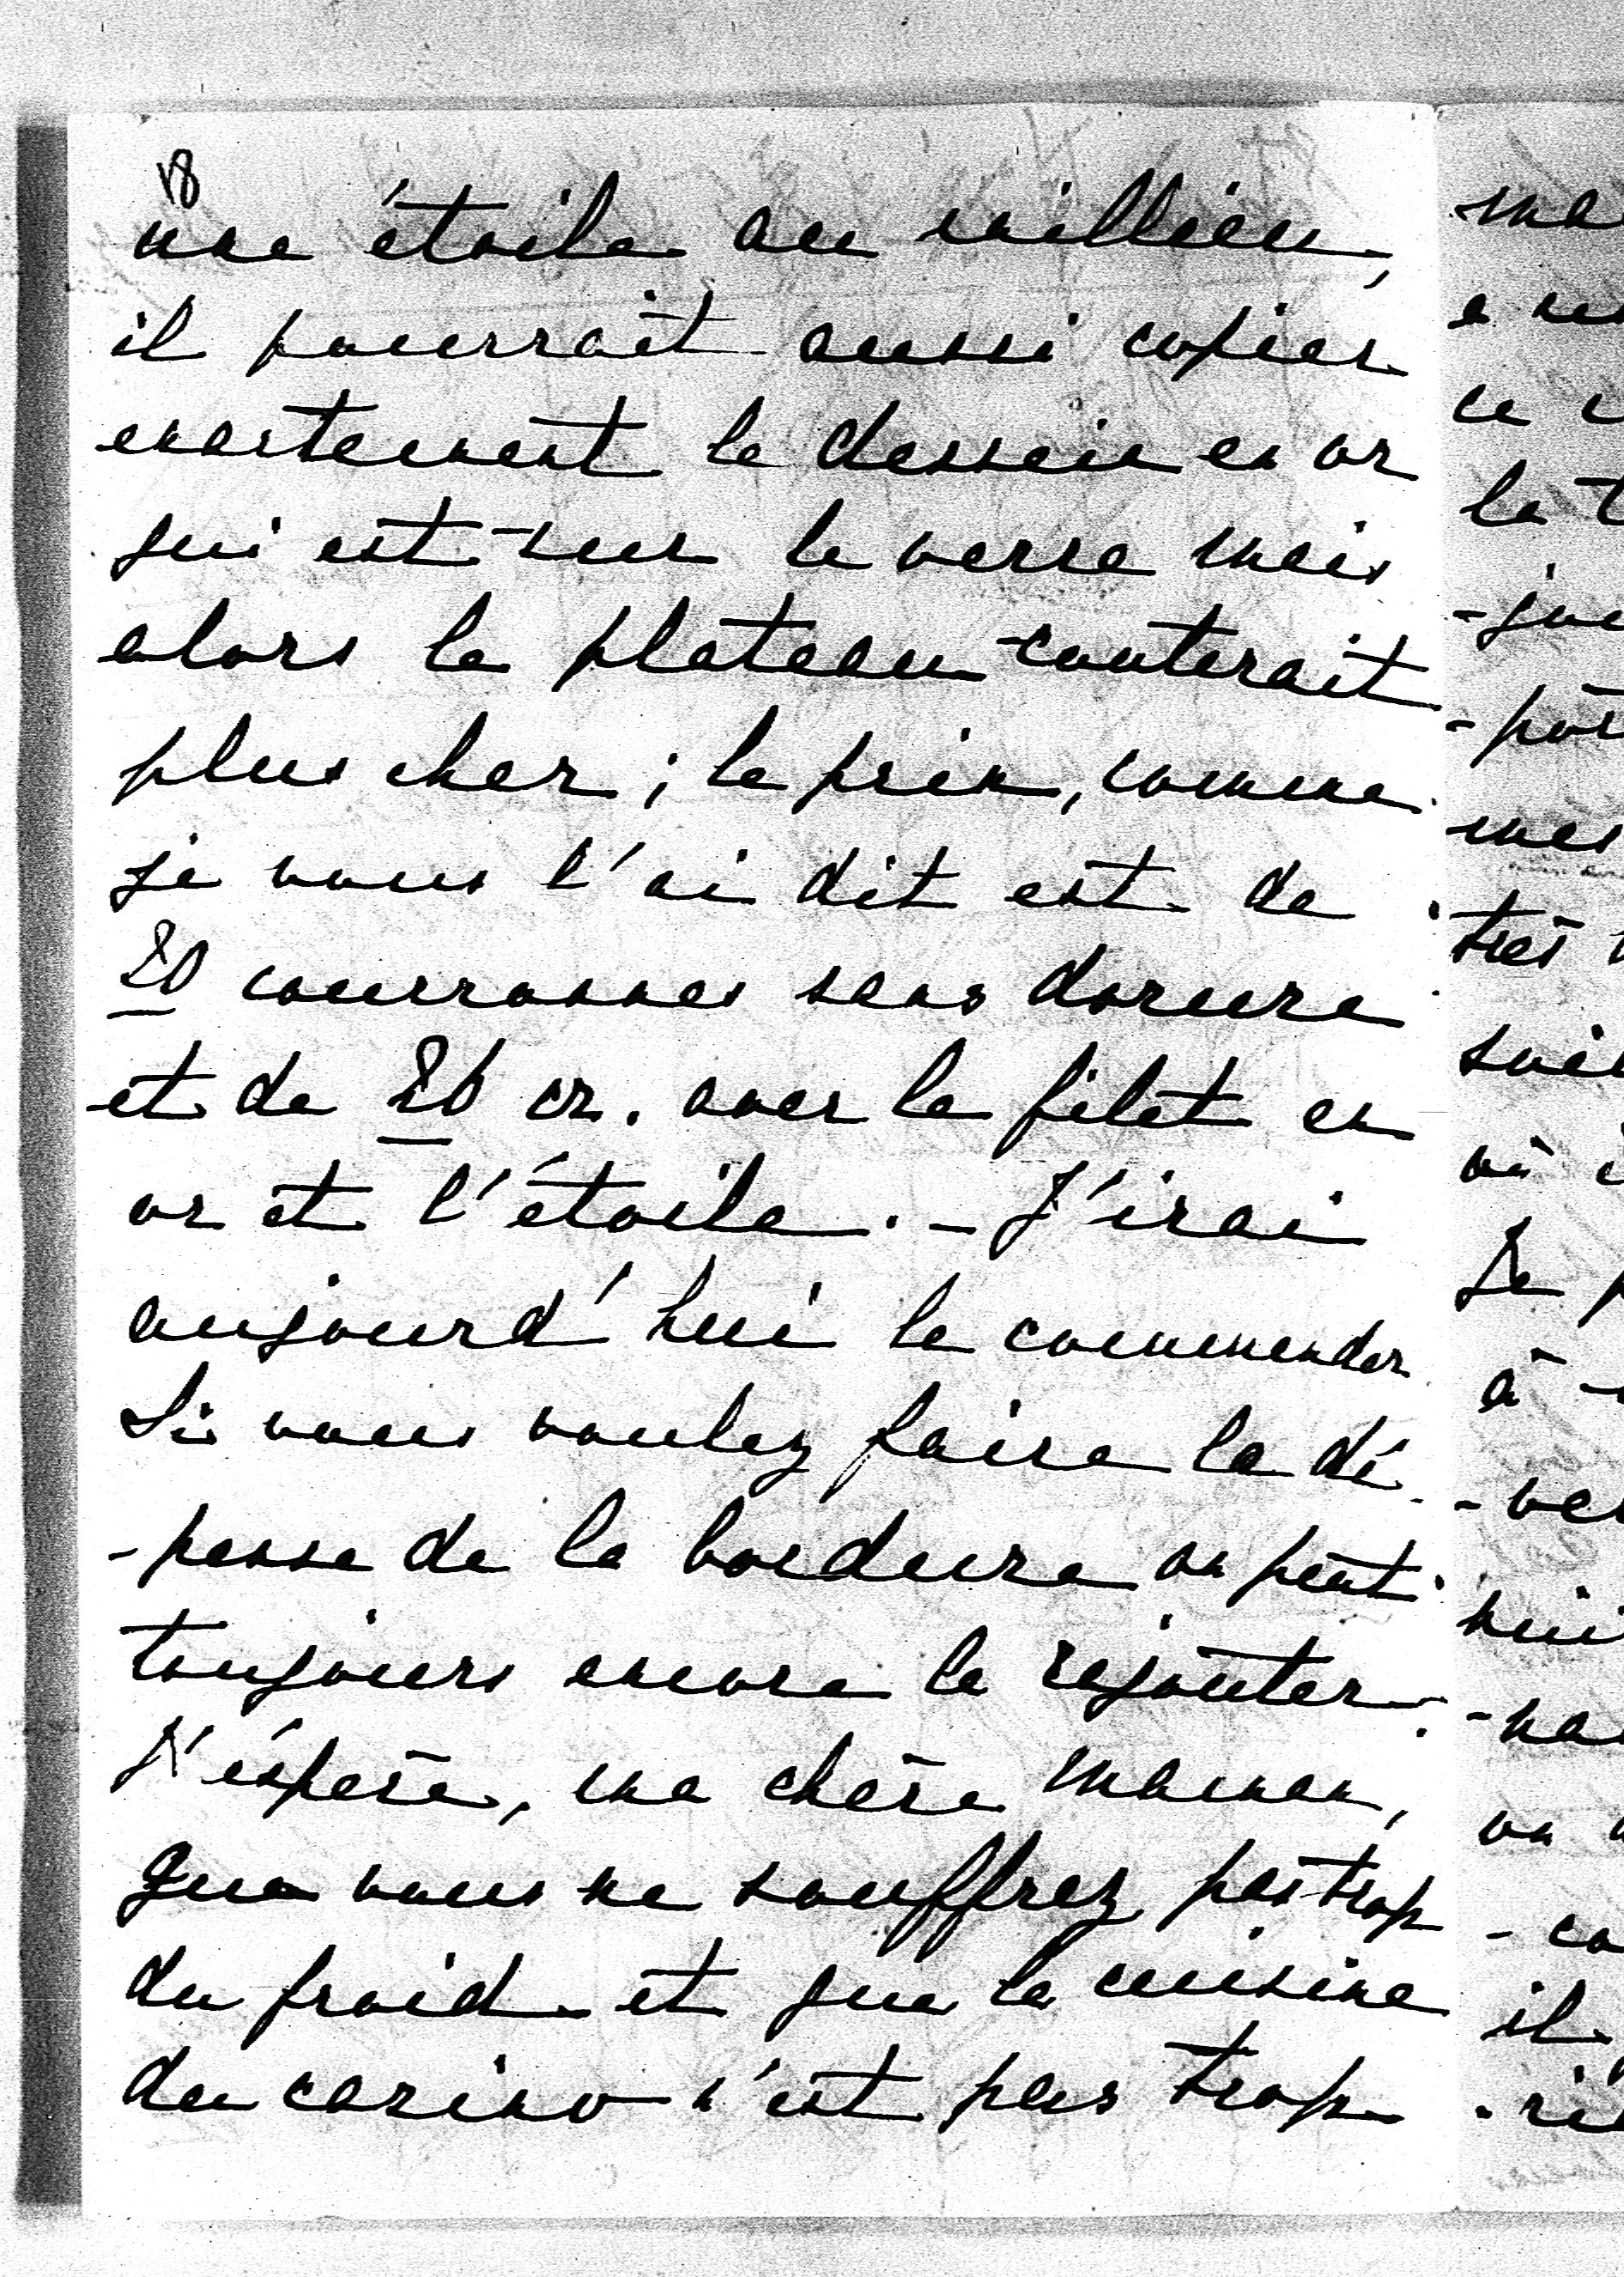 18
une étoile au millieu,
il pourrait aussi copier
exactement le dessein en or
qui est sur le verre mais
alors le plateau couterait
plus cher ; le prix, comme
je vous l'ai dit est de
20 courronnes sans dorure
et de 26 cr. avec le filet en
or et l'étoile. - J'irai
aujourd'hui le commender
Si vous voulez faire la dé-
-pense de la bordure on peut
toujours encore la rajouter.
J'éspère, ma chère maman,
que vous ne souffrez pas trop
du froid et que la cuisine
du casino n'est pas trop